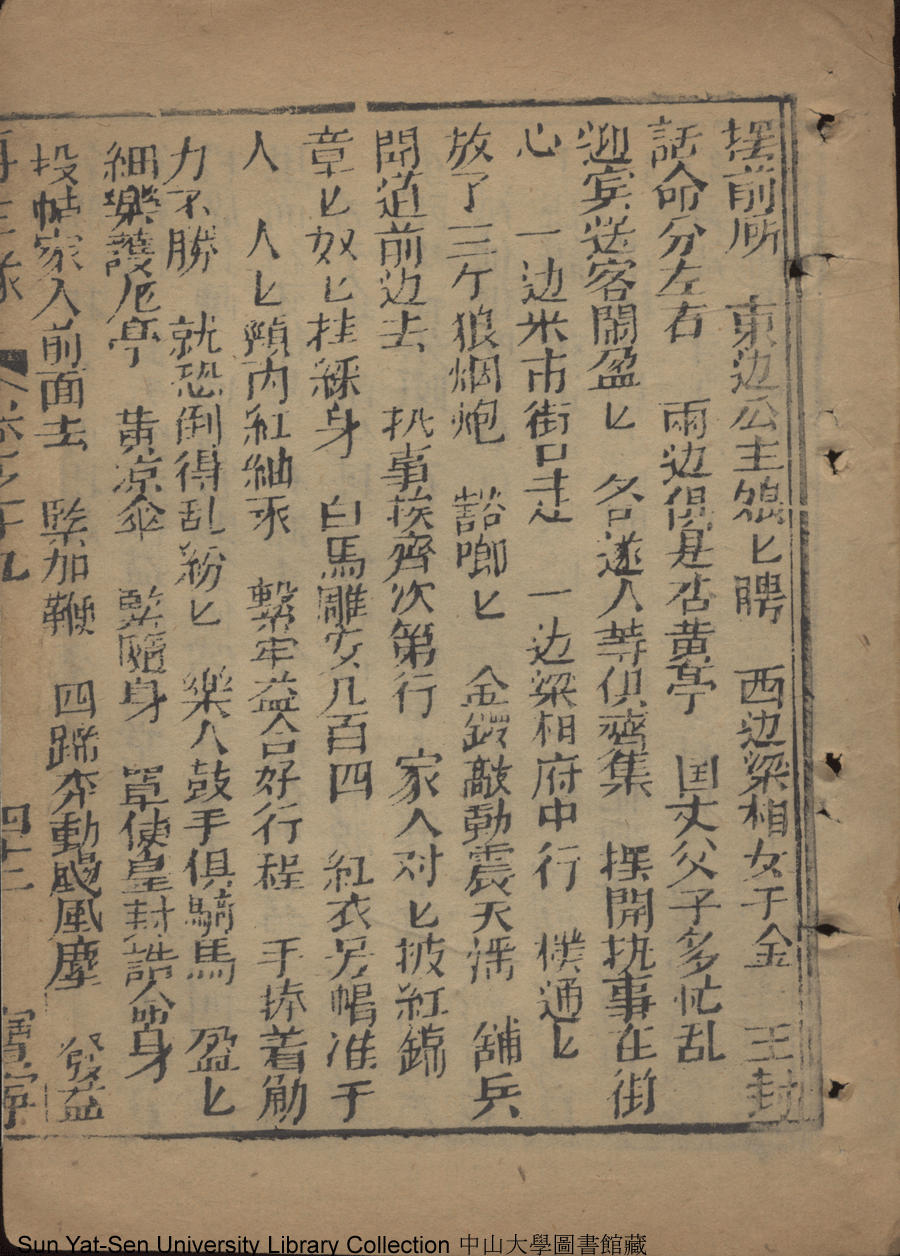 摆前所 東边公主娘匕聘 西边梁相女千金 王封
話命分左右 兩边俱是杏黄亭 囯丈父子多忙乱
迎宾送客閙盈匕 各遂人等俱齊集 摆開执事在街
心 一边米市街口走 一边梁相府中行 樸通匕
放了三ケ狼烟炮 豁啷匕 金鑼敲動震天 舖兵
開道前边去 执事挨齊次第行 家人对匕披紅錦
章匕奴匕挂綵身 白馬雕安几百四 紅衣另帽准于
人 人匕頸内紅紬 繫牢益合好行程 手捧着
力不勝 就恐倒得乱紛匕 樂人鼓手俱騎馬 盈匕
細樂護 亭 黄凉伞 緊隨身 單使皇封誥命身
投帖家人前面去 緊加鞭 四蹄奔動颺風塵 發益
再生緣 卷之十九 四十二 寳寧
Sun Yat-Sen University Library Collection 中山大學圖書館藏